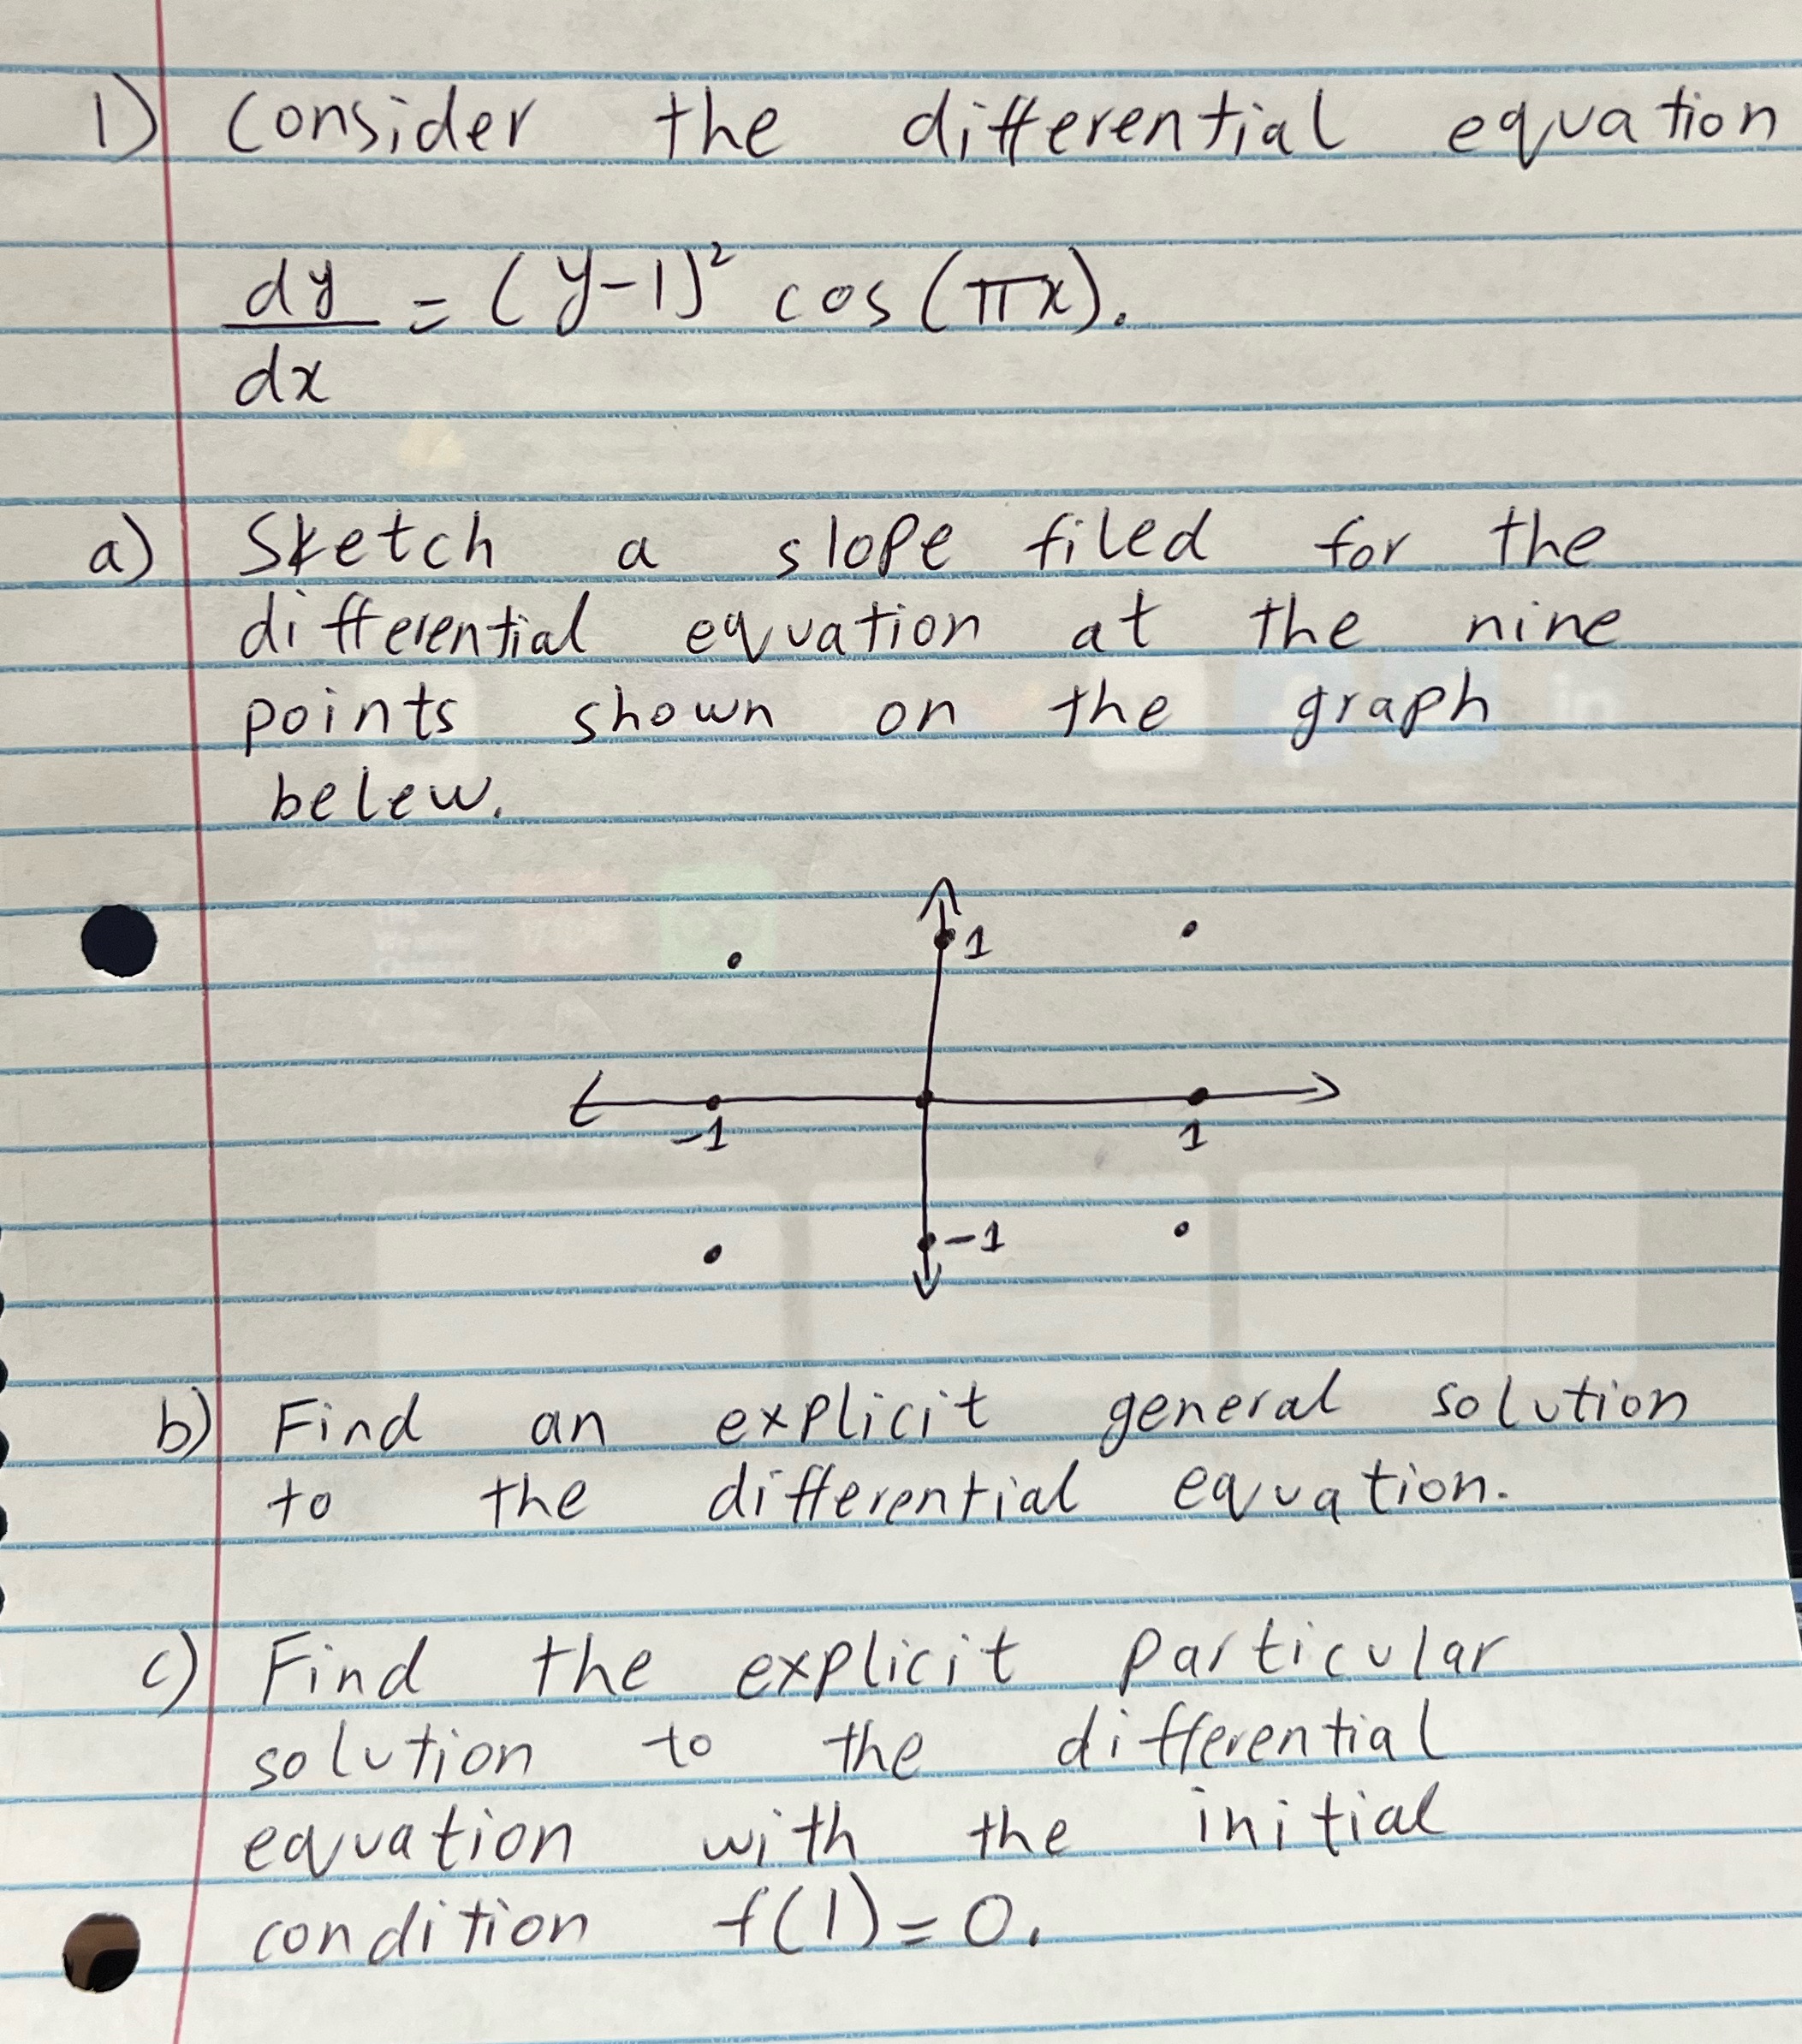 1) Consider the differential equation
dy/dx = (y-1)² cos(πx).
a) Sketch a slope filed for the
differential equation at the nine
points shown on the graph
belew.
1
-1 1
-1
b) Find an explicit general solution
to the differential equation.
c) Find the explicit particular
solution to the differential
equation with the initial
condition f(1)=0.